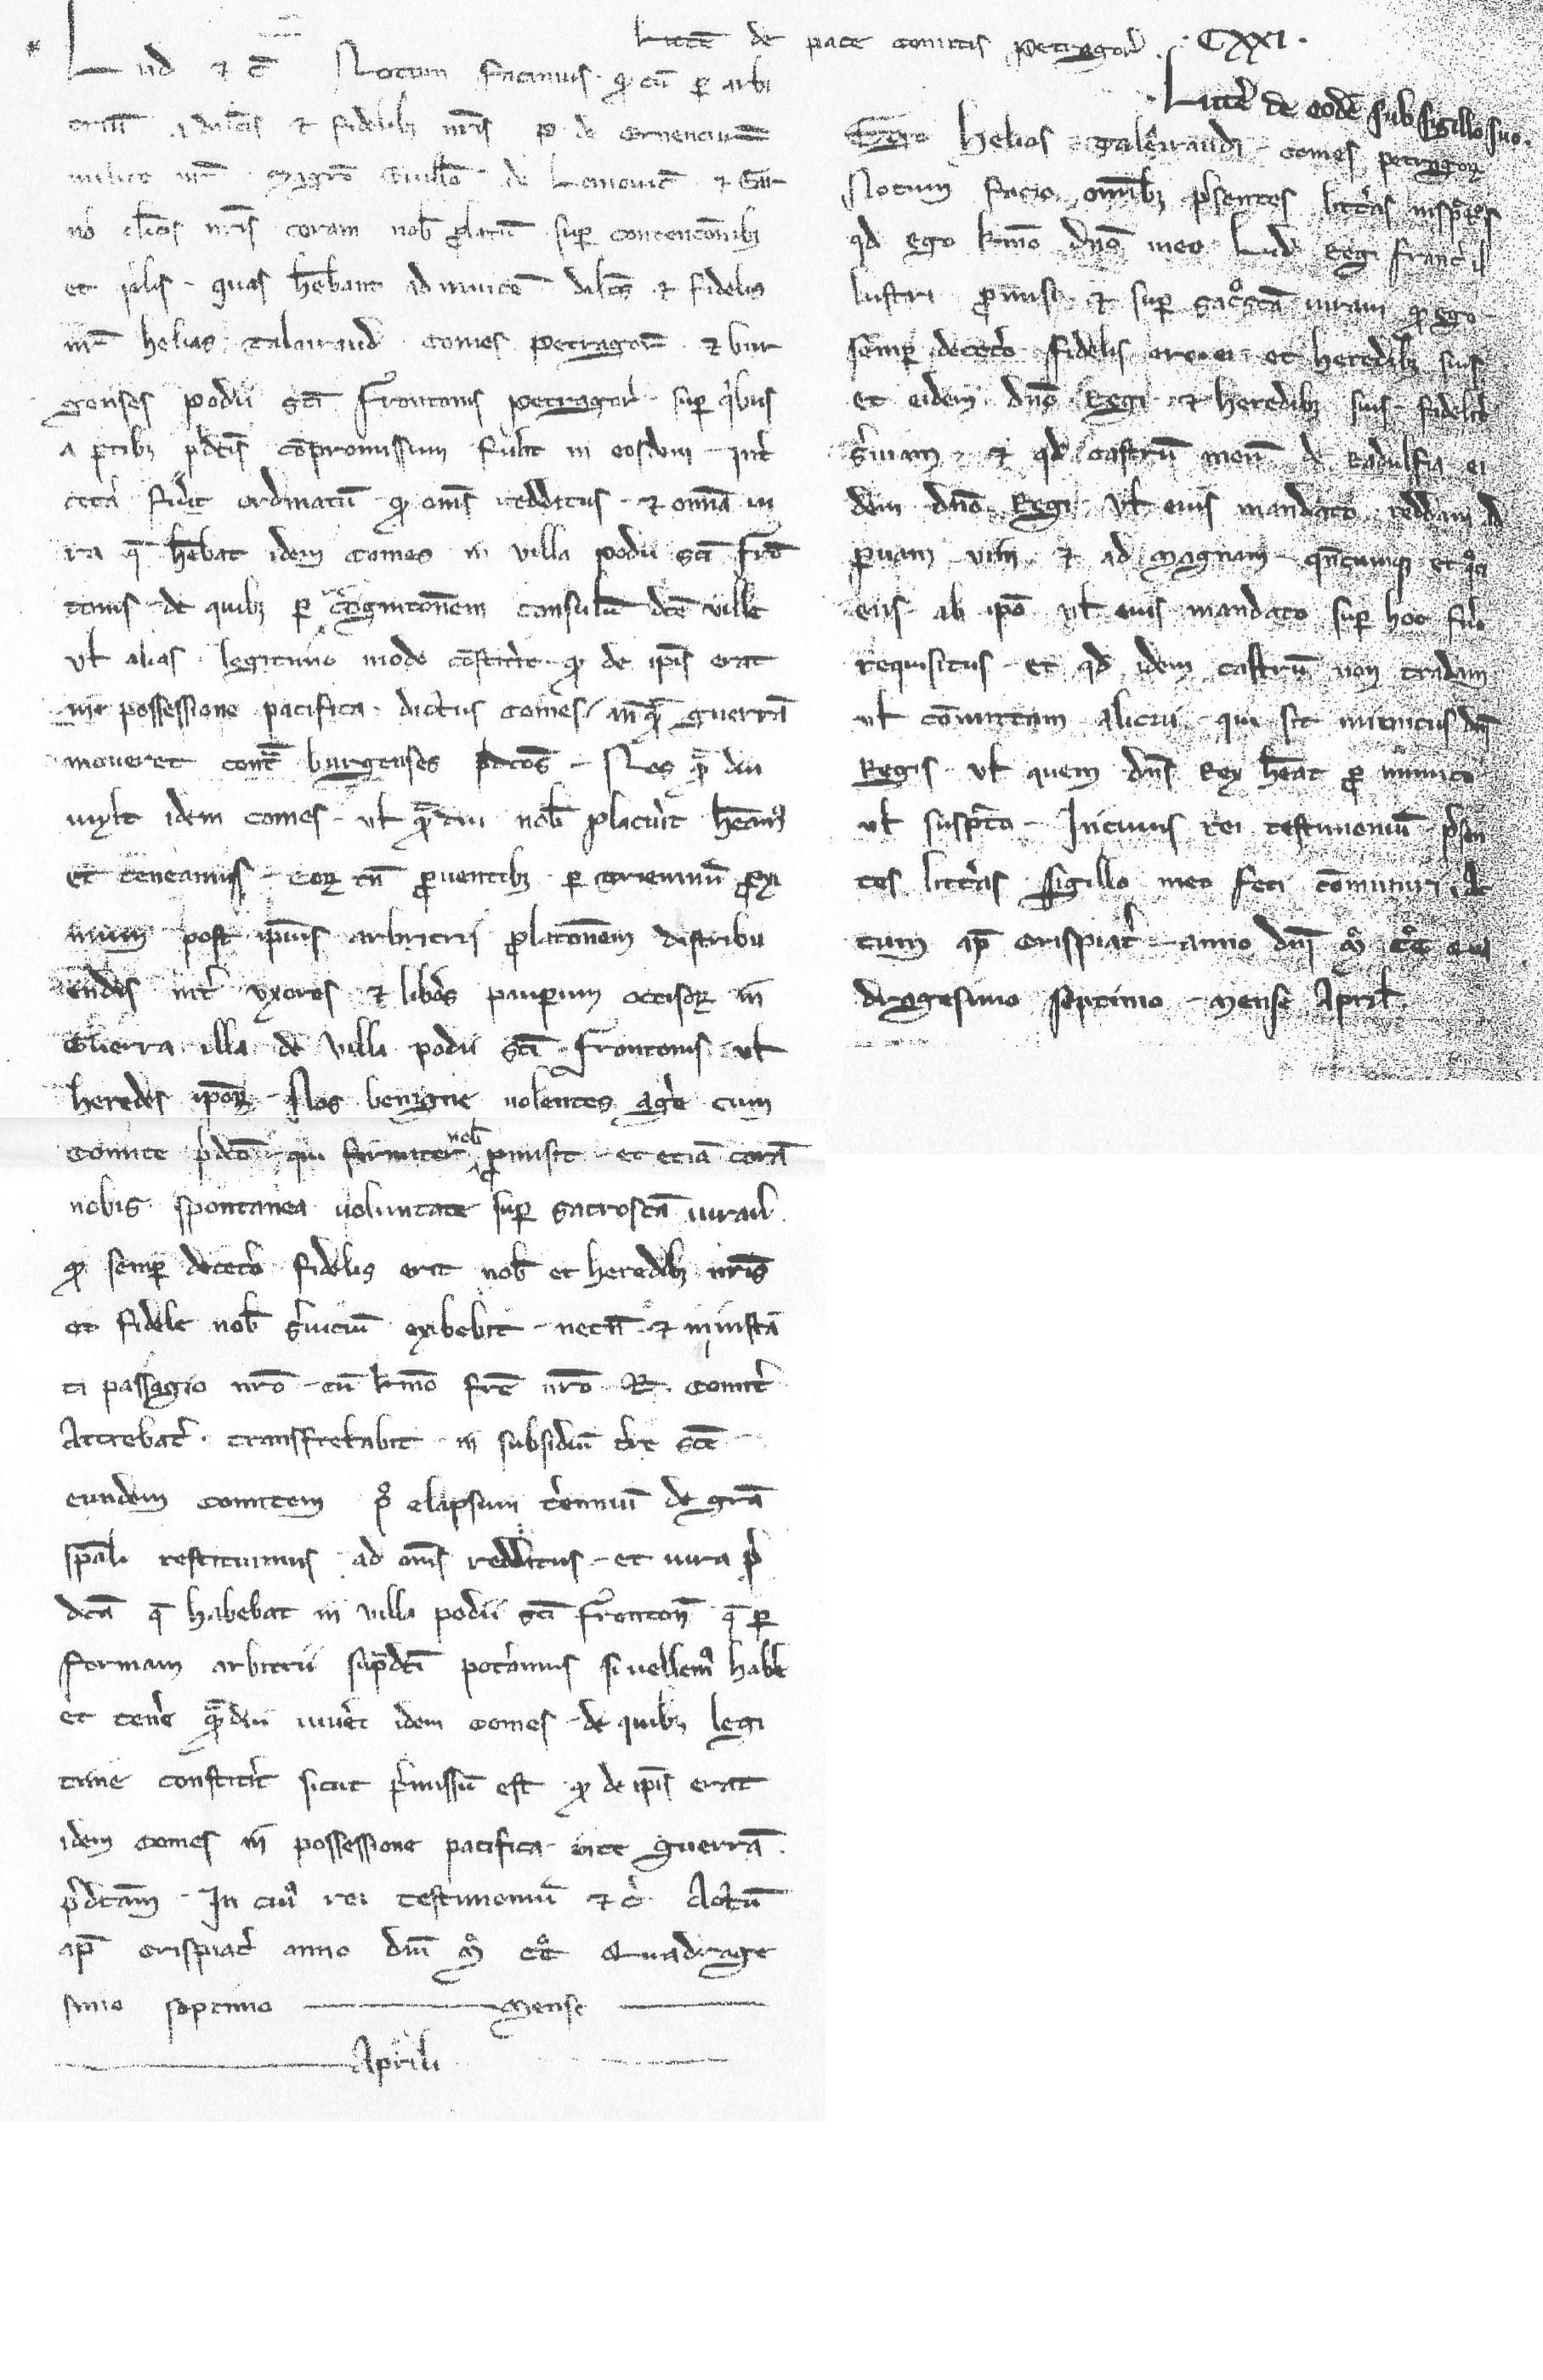 Littẽ de pace comitis petragoř . CXXI .
Lud & c̃ Notum facimus q̛ cũ ꝑ arbi
triũ a dilc̃is & fidelibꝫ nr̃is p. de
milite nr̃o magr̃o Guill̃o de Lemovic̃ & Gir
nõ cl̃icos nr̃is coram nob̃ ꝓlatũ suꝑ contencõnibꝫ
et ip̃lis quas hẽbant ad invicẽ dilc̃s & fidelis
nr̃ helias talairand comes petragoř & bur
genses podii sc̃i Frontonis petragoř suꝑ q̃ibus
a ꝑtibꝫ p̃dc̃is cõpromissum fuũt in eosdem int̃
cet̃a fuit ordinatũ q̛ om̃s redditus & om̃ia iu
ra q̃ hẽbat idem comes in villa podii sc̃i fro
tonis de quibꝫ ꝑ cognitionem consulũ dc̃e ville
vl̃ alias legitimo modo cõstitit̃ q̛ de ip̃is erat
in possessione pacifica dictus comes an̄q̃ guerrã
moveret cont̃ burgenses p̃dc̃os Nos q̃ diu
vix̃it idem comes vl̃ q̃diu nob̃ placũit hẽam᷒
et teneamus eoꝝ tñ ꝓventibꝫ ꝑ trienniũ ꝓxi
mum post ip̃ius arbitrii ꝓlationem distribu
endis int̃ uxores & lib̃os pauꝑum occisoꝝ in
Guerra illa de villa podii sc̃i Frontonis vl̃
heredes ip̃oꝝ Nos benigne volentes ag̃e cum
Comite p̃dc̃o qui firmiter nob̃ ꝓmisit et etiã corã
nobis spontanea voluntate suꝑ sacrosc̃a iuravit
q̛ semꝑ decet̃o fidelis erit nob̃ et heredibꝫ nr̃is
et fidele nob̃ s̃viciũ exibebit necñ & in instã
ti passagio nr̃o cũ kr̃mo fr̃e nr̃o R. comit̃
Attrebat̃ transfretabit in subsidiũ t̃re sc̃e
eundem comitem p᷒ elapsum t̃enniũ de gr̃a
sp̃ali restituimus ad om̃s redditus et iura p̃
dc̃a q̃ habebat in villa podii sc̃i Frontoñ q̃ ꝑ
formam arbitrii sup̃dc̃i pot̃amus si vellem᷒ hab̃e
et ten̄e q̃diu viv̄et idem comes de quibꝫ legi
time constit̃it sicut p̃missũ est q̛ de ip̃is erat
idem comes in possessione pacifica ante guerrã
p̃dc̃am In cui᷒ rei testimoniũ & c̃ Actũ
ap̃ crispiac̃ anno dñi m᷒ cc᷒ Quadrage
simo septimo mense
Aprili
Litt̃e de eodẽ sub sigillo suo .
Ego Helias talairandi comes petragoꝝ
Notum facio omnibꝫ p̃sentes litt̃as inspc̃uris
qd̃ ego kr̃mo dño meo Lud̃ Regi franc̃ il
lustri ꝓmisi & suꝑ sac᷒sc̃a iuravi q̛ ego
semꝑ decet̃o fidelis ero ei et heredibꝫ suis
et eidem dño Regi & heredibꝫ suis fidelit̃
s̃viam & qd̃ castrũ meũ de Radulfia ei
dem dño Regi vl̃ eius mandato reddam ad
ꝑvam vim & ad magnam
ens ab ip̃o vl̃ eius mandato suꝑ hoc fũo
requisitus et qd̃ idem castrũ non tradam
vl̃ cõmittam alicui qui sit inimicus dñi
Regis vl̃ quem dñs Rex hẽat ꝓ inimico
vl̃ suspc̃to In cuius rei testimoniũ p̃sen
tes litt̃as sigillo meo feci cõmuniri Ac
tum ap̃ crispiac̃ anno dñi m᷒ cc᷒ qua
dragesimo septimo mense April̃